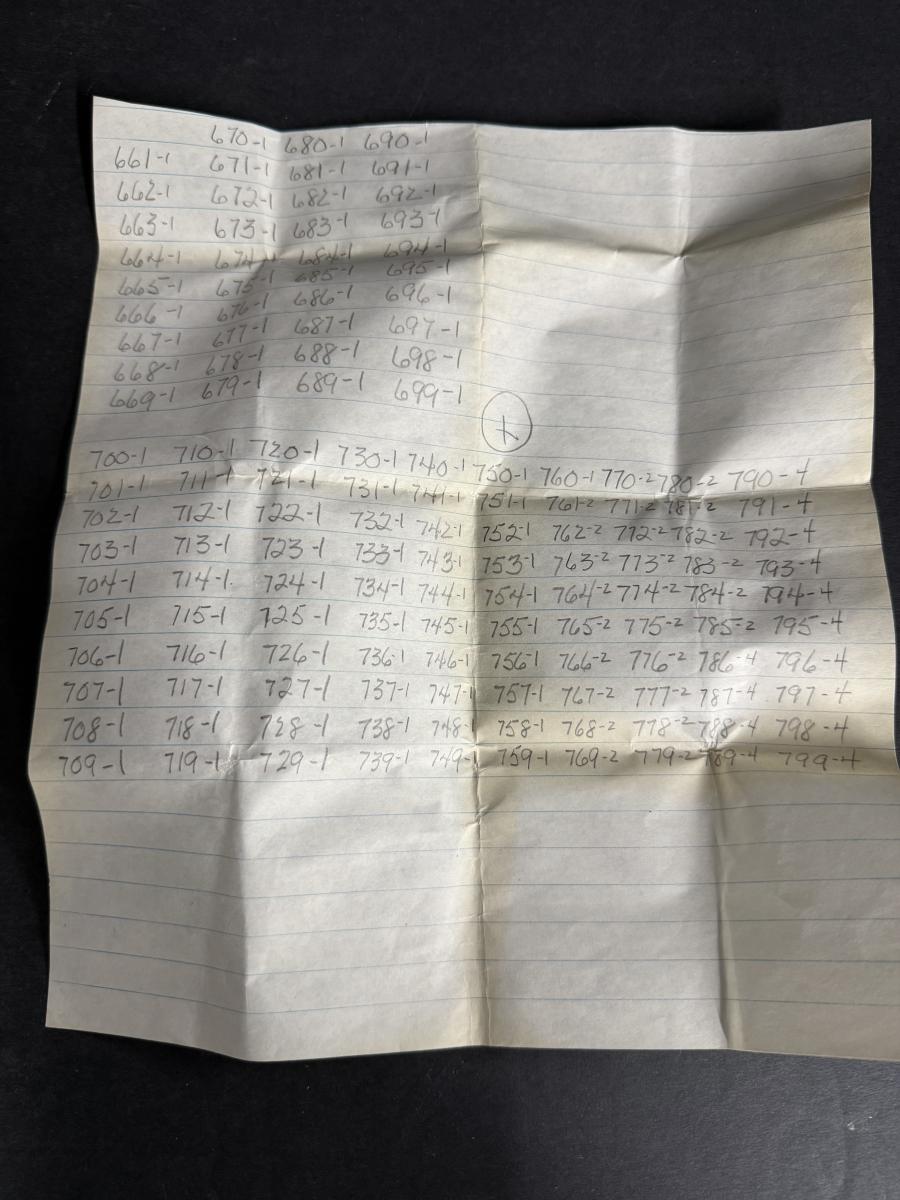 670-1 680-1 690-1
661-1 671-1 681-1 691-1
662-1 672-1 682-1 692-1
663-1 673-1 683-1 693-1
664-1 674-1 684-1 694-1
665-1 675-1 685-1 695-1
666-1 676-1 686-1 696-1
667-1 677-1 687-1 697-1
668-1 678-1 688-1 698-1
669-1 679-1 689-1 699-1
700-1 710-1 720-1 730-1 740-1 750-1 760-1 770-2 780-2 790-4
701-1 711-1 721-1 731-1 741-1 751-1 761-2 771-2 781-2 791-4
702-1 712-1 722-1 732-1 742-1 752-1 762-2 772-2 782-2 792-4
703-1 713-1 723-1 733-1 743-1 753-1 763-2 773-2 783-2 793-4
704-1 714-1 724-1 734-1 744-1 754-1 764-2 774-2 784-2 794-4
705-1 715-1 725-1 735-1 745-1 755-1 765-2 775-2 785-2 795-4
706-1 716-1 726-1 736-1 746-1 756-1 766-2 776-2 786-4 796-4
707-1 717-1 727-1 737-1 747-1 757-1 767-2 777-2 787-4 797-4
708-1 718-1 728-1 738-1 748-1 758-1 768-2 778-2 788-4 798-4
709-1 719-1 729-1 739-1 749-1 759-1 769-2 779-2 789-4 799-4